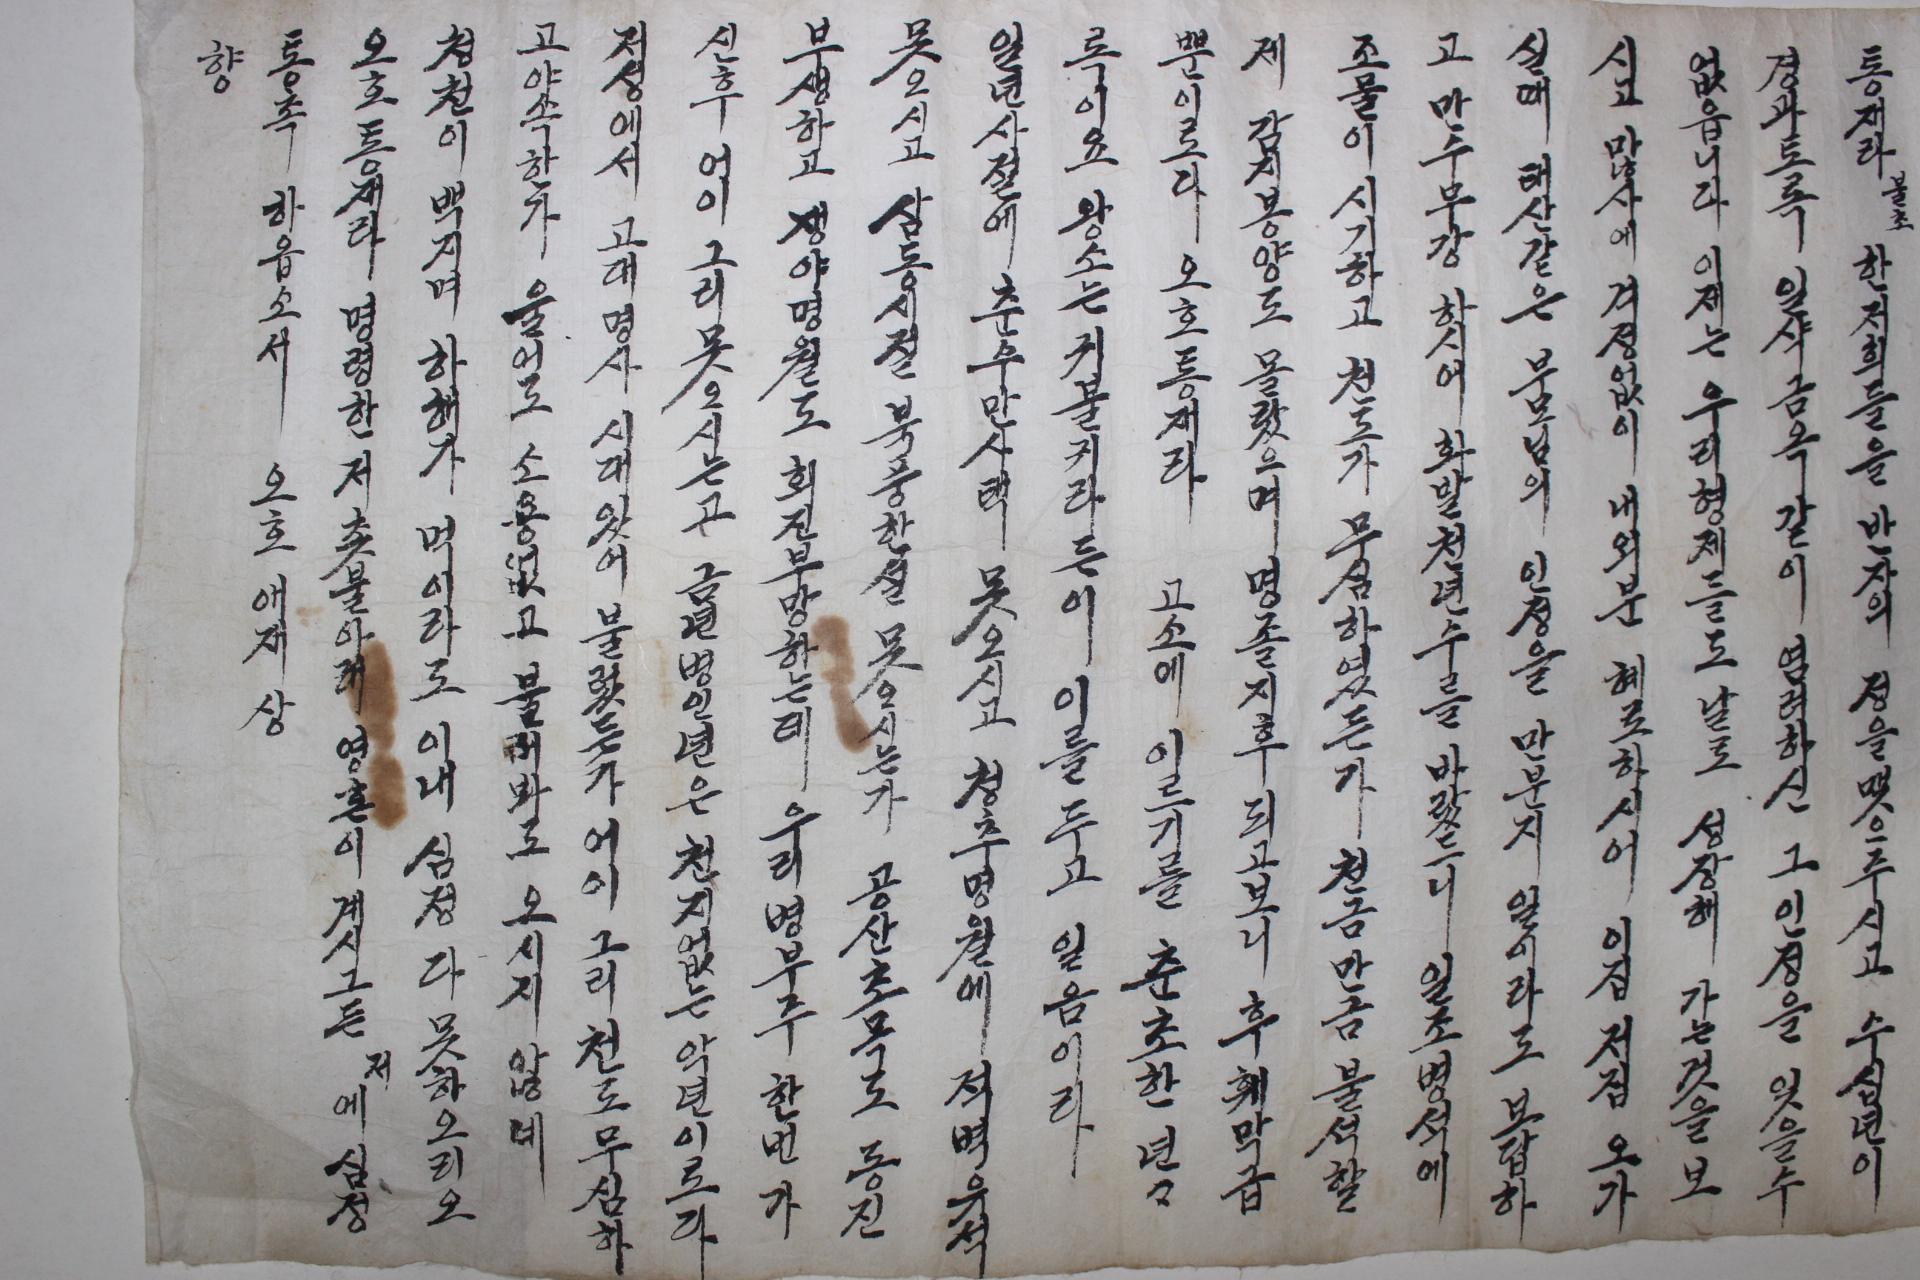 통재라 불초 한저희들을 반자의 정을맺으주시고 수십년이
경과토록 일사금옥 갈이 염려하신 그인정을 잇을수
없읍니다 이제는 우리형제들도 날로 성장해 가는것을 보
시고 많사에 거정없이 내외분 혜로하시어 이집 저집 오가
실때 태산같은 부모님의 인정을 만분지 일이라도 보답하
고 만수무강 하시어 화발천년수를 바랐드니 일조병석에
조물이 시기하고 천도가 무심하였든가 천금만금 불석할
제 감지봉양도 몰랐으며 명졸지후 되고보니 후훼막급
뿐이로다 오호통재라 고소에 이르기를 춘초한 년년
록이요 왕소는귀불귀라든이 이를두고 일음이라
일년사절에 춘수만사택 못오시고 청추명월에 적벽우석
못오시고 삼동시절 북풍한설 못오시는가 공산초목도 동진
부생하고 쟁야명월도 회진부망하는데 우리병부주 한번 가
신후 어이 그리못오시는고 금년병인년은 천지없는 악년이로다
저성에서 고대명사 시대있어 불렀든가 어이 그리 천도무심하
고야속한가 울어도 소용없고 불러봐도 오시지 않네
청천이 백지며 하해가 먹이라도 이내 심정 다 못하오리오
오호통재라 명령한 저 촛불아래 영혼이 계시그든 저에 심정
통촉 하옵소서 오호 애재 상
향